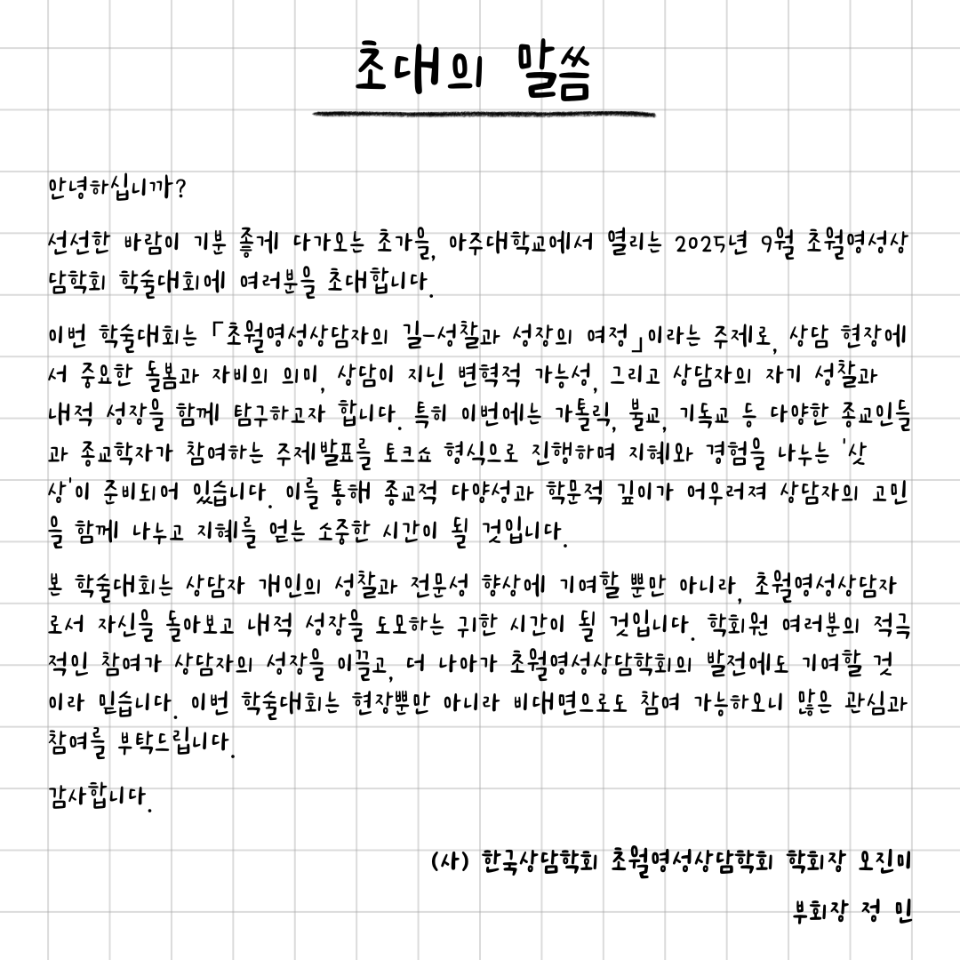 초대의 말씀
안녕하십니까?
선선한 바람이 기분 좋게 다가오는 초가을, 아주대학교에서 열리는 2025년 9월 초월영성상
담학회 학술대회에 여러분을 초대합니다.
이번 학술대회는 「초월영성상담자의 길-성찰과 성장의 여정」이라는 주제로, 상담 현장에
서 중요한 돌봄과 자비의 의미, 상담이 지닌 변혁적 가능성, 그리고 상담자의 자기 성찰과
내적 성장을 함께 탐구하고자 합니다. 특히 이번에는 가톨릭, 불교, 기독교 등 다양한 종교인들
과 종교학자가 참여하는 주제발표를 토크쇼 형식으로 진행하며 지혜와 경험을 나누는 '삿
상'이 준비되어 있습니다. 이를 통해 종교적 다양성과 학문적 깊이가 어우러져 상담자의 고민
을 함께 나누고 지혜를 얻는 소중한 시간이 될 것입니다.
본 학술대회는 상담자 개인의 성찰과 전문성 향상에 기여할 뿐만 아니라, 초월영성상담자
로서 자신을 돌아보고 내적 성장을 도모하는 귀한 시간이 될 것입니다. 학회원 여러분의 적극
적인 참여가 상담자의 성장을 이끌고, 더 나아가 초월영성상담학회의 발전에도 기여할 것
이라 믿습니다. 이번 학술대회는 현장뿐만 아니라 비대면으로도 참여 가능하오니 많은 관심과
참여를 부탁드립니다.
감사합니다.
(사) 한국상담학회 초월영성상담학회 학회장 오진미
부회장 정 민